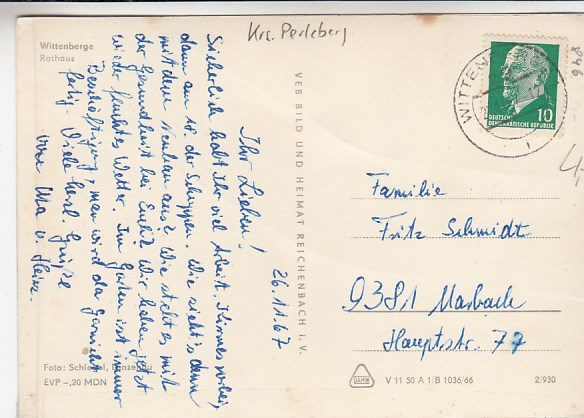 Wittenberge
Rathaus
Krs. Perleberg
WITTEN
10
DEUTSCHE
DEMOKRATISCHE REPUBLIK
846
4,-
26.11.67
Ihr Lieben!
Sicherlich habt Ihr viel Arbeit. Kirmes vorbei,
dann am der Schuppen. Wie sieht's denn
mit dem Neubau aus? Wie steht es mit
der Gesundheit bei Euch? Wir haben jetzt
wieder feuchtes Wetter. Im Garten ist immer
Beschäftigung, man wird da garnicht
fertig. Viele herzl. Grüße
von Uta u. Heinz.
VEB BILD UND HEIMAT REICHENBACH i. V.
Familie
Fritz Schmidt
9381 Marbach
Hauptstr. 77
Foto:
EVP -,20 MDN
V 11 50 A 1/B 1036/66
2/930